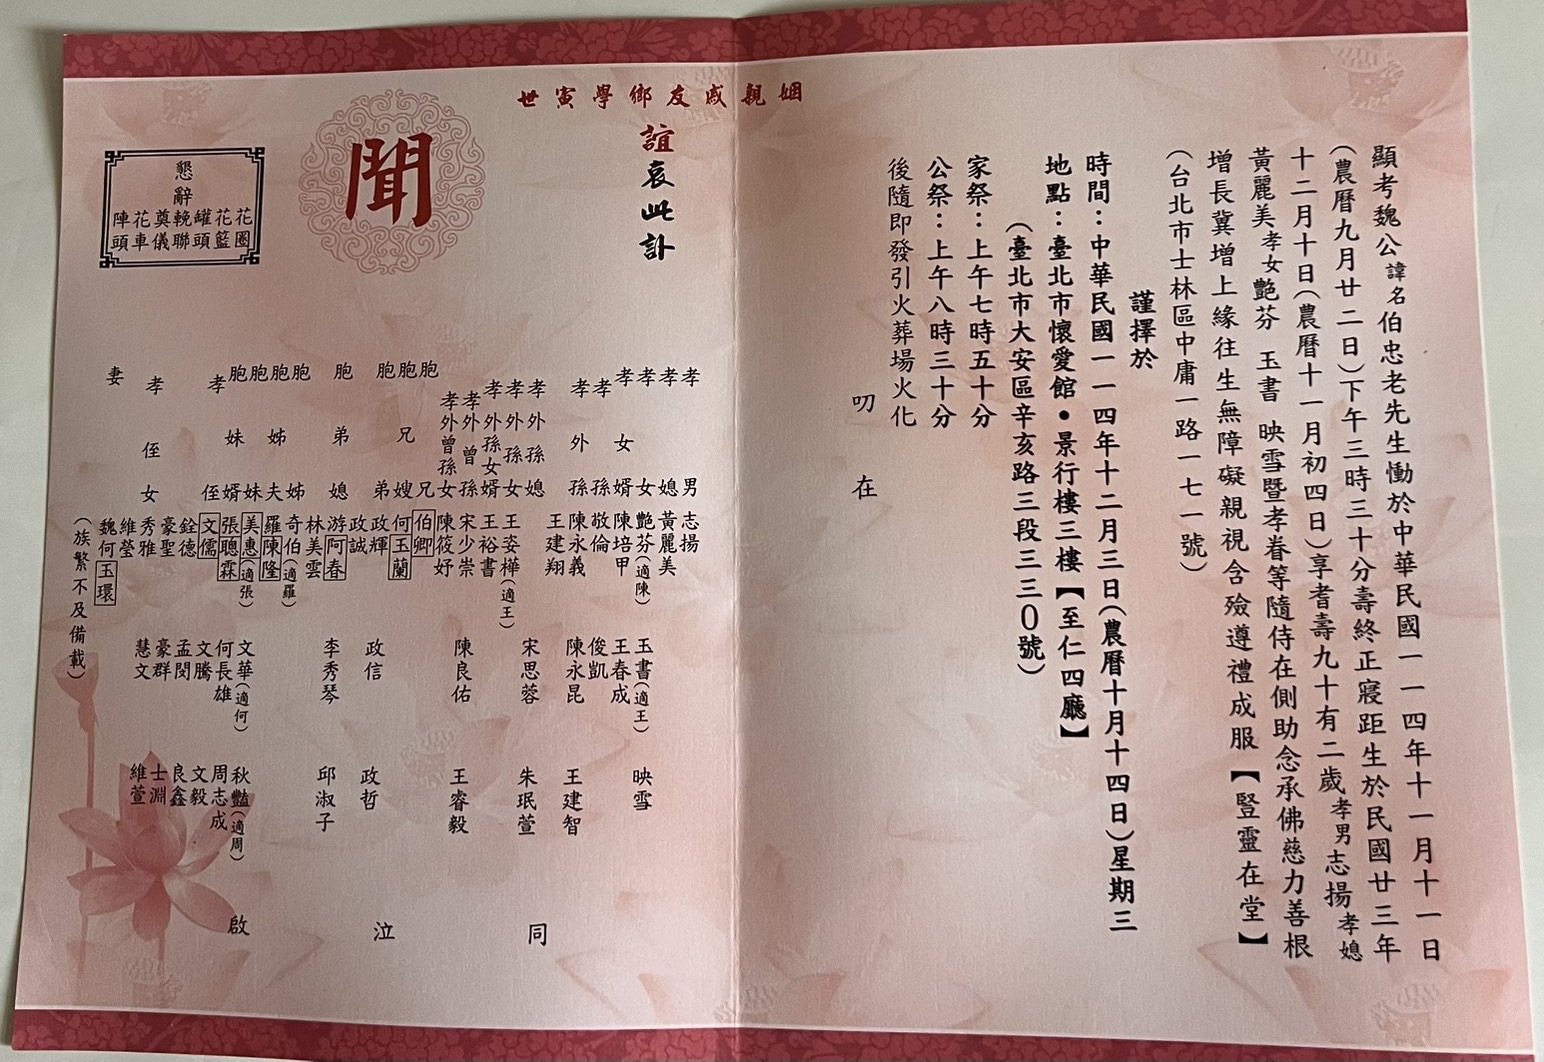 顯考魏公諱名伯忠老先生慟於中華民國一一四年十一月十一日
(農曆九月廿二日)下午三時三十分壽終正寢距生於民國廿三年
十二月十日(農曆十一月初四日)享耆壽九十有二歲孝男志揚孝媳
黃麗美孝女艷芬 玉書 映雪暨孝眷等隨侍在側助念承佛慈力善根
增長冀增上緣往生無障礙親視含殮遵禮成服【豎靈在堂】
(台北市士林區中庸一路一七一號)
謹擇於
時間：中華民國一一四年十二月三日(農曆十月十四日)星期三
地點：臺北市懷愛館•景行樓三樓【至仁四廳】
(臺北市大安區辛亥路三段三三0號)
家祭：上午七時五十分
公祭：上午八時三十分
後隨即發引火葬場火化
叨在
姻親戚友鄉學寅世
誼哀此訃
聞
懇辭
花圈
花籃
罐頭
輓聯
奠儀
花車
陣頭
孝男 志揚
孝媳 黃麗美
孝女 艷芬(適陳) 玉書(適王) 映雪
孝女婿 陳培甲 王春成
孝孫 敬倫 俊凱
孝外孫 陳永義 陳永昆 王建智
王建翔
孝外孫媳 宋思蓉 朱珉萱
孝外孫女 王姿樺(適王)
孝外孫女婿 王裕書
孝外曾孫 宋少崇 陳良佑 王睿毅
孝外曾孫女 陳筱妤
胞兄 伯卿
胞兄嫂 何玉蘭
胞弟 政輝 政信 政哲
政誠
胞弟媳 游阿春 李秀琴 邱淑子
林美雲
胞姊 奇伯(適羅)
胞姊夫 羅陳隆
胞妹 美惠(適張) 文華(適何) 秋豔(適周)
胞妹婿 張聰霖 何長雄 周志成
孝侄 文儒 文騰 文毅
銓德 孟閔 良鑫
豪聖 豪群 士淵
孝侄女 秀雅 慧文 維萱
維瑩
妻 魏何玉環
(族繁不及備載)
同泣啟